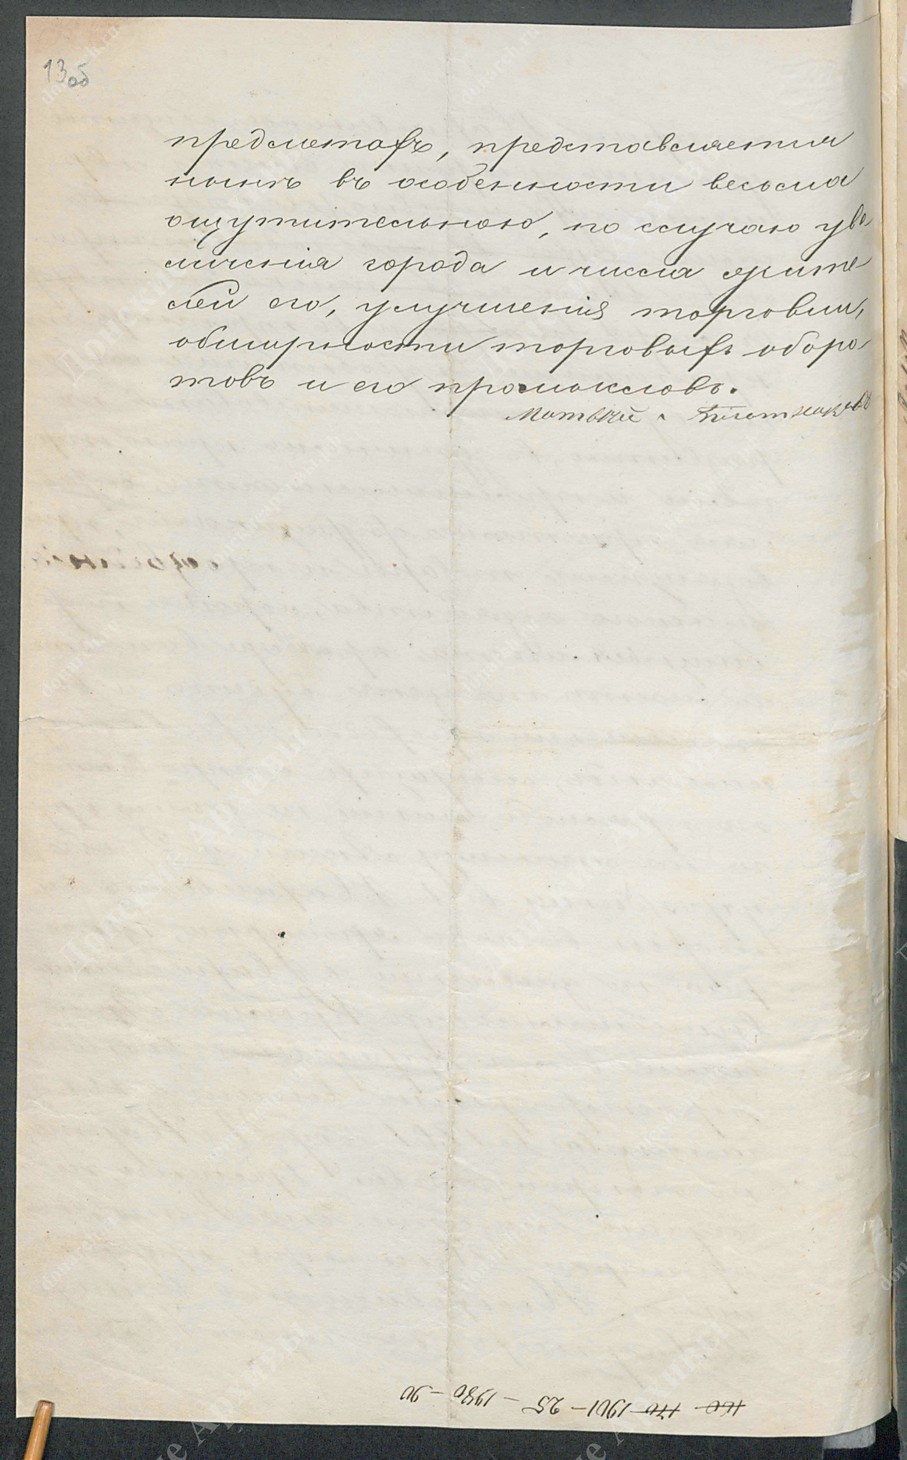 13об
предметахъ, представляется
нынѣ въ особенности весьма
ощутительною, по случаю уве-
личенія города и числа жите-
лей его, улучшенія торговли,
обширности торговыхъ оборо-
товъ и его промысловъ.
Матвѣй Плотниковъ
160 170 1901 – 25 – 1930 – 90